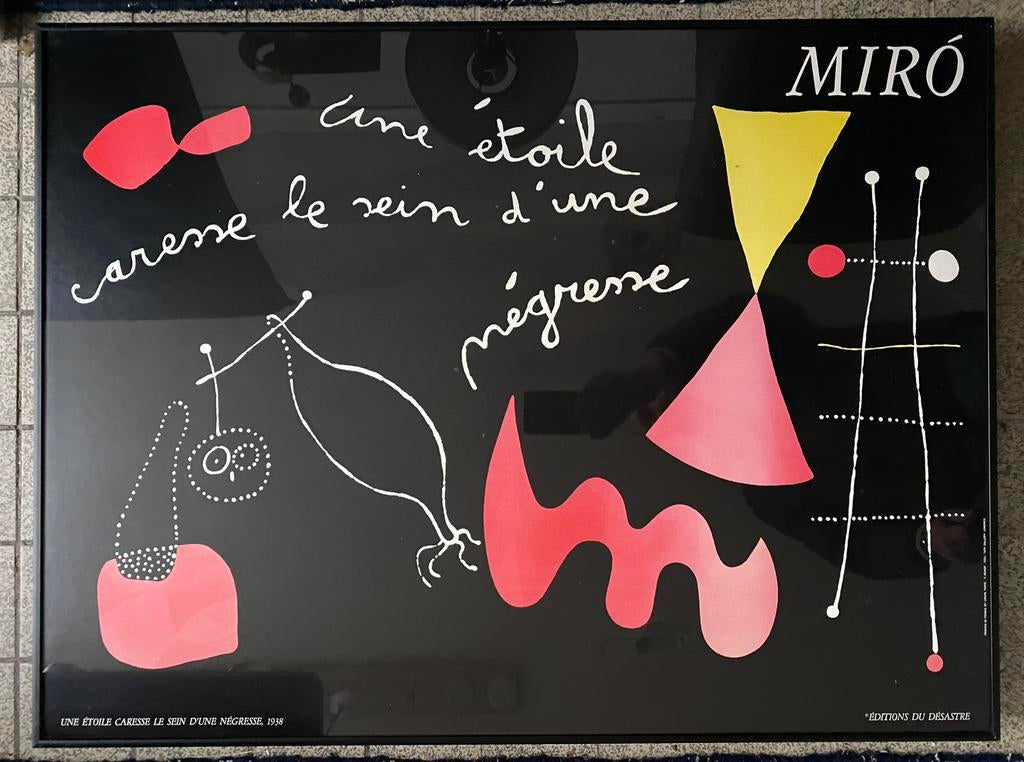 MIRÓ
une étoile
caresse le sein d'une
négresse
UNE ÉTOILE CARESSE LE SEIN D'UNE NÉGRESSE, 1938
©ÉDITIONS DU DÉSASTRE